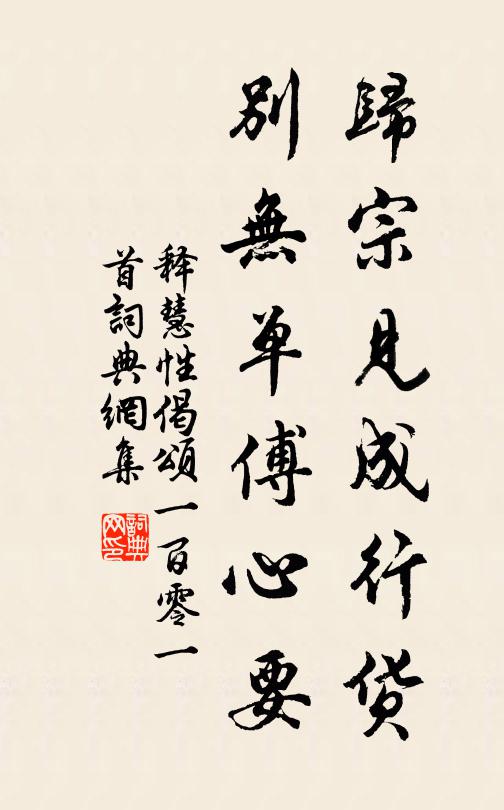 歸宗見成行货
別無单傅心要
释慧性偈頌一百零一
首詞典網集
詞典
网印